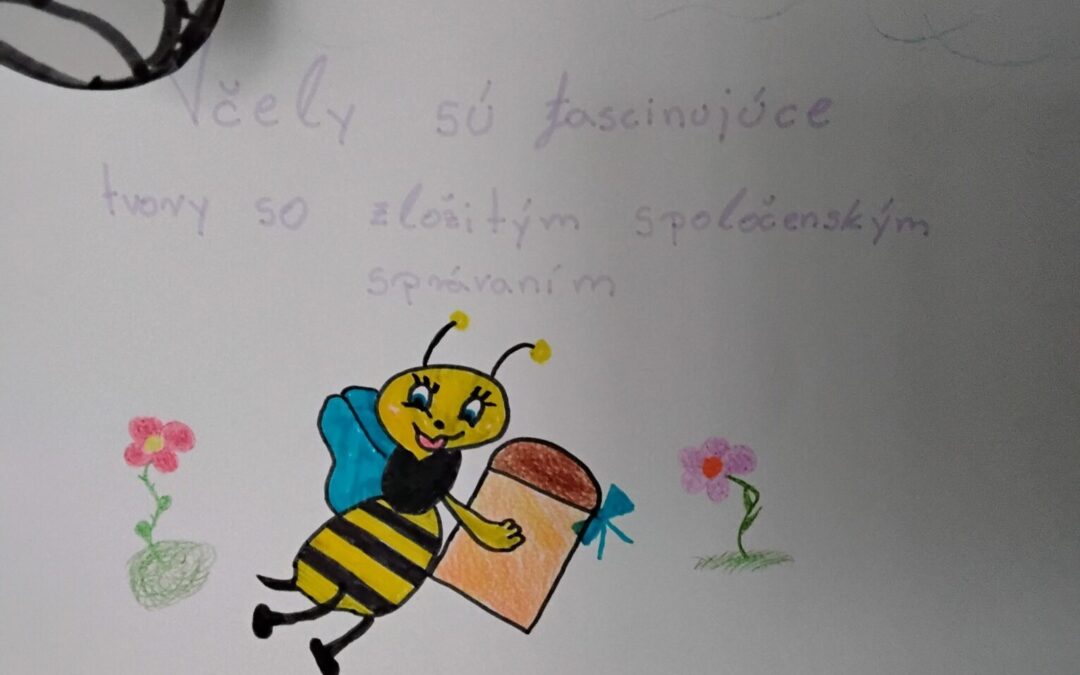 Včely sú fascinujúce
tvory so zložitým spoločenským
správaním